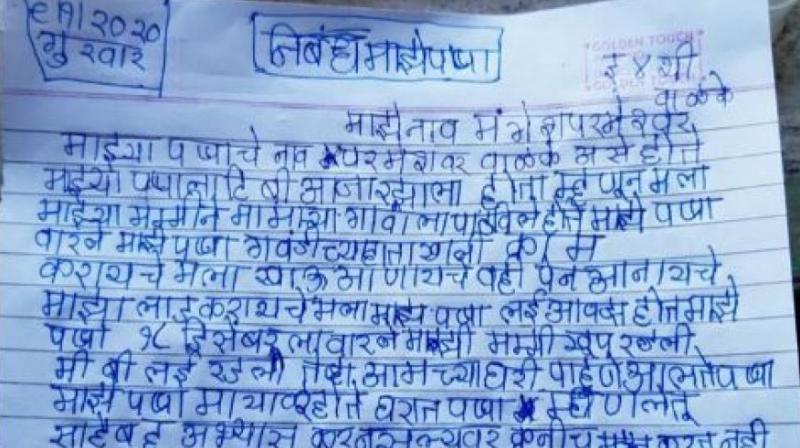 ९/१/२०२०
गुरुवार
निबंध माझे पप्पा
GOLDEN TOUCH
इ ४ थी
माझे नाव मंगेश परमेश्वर वाळके
माझ्या पप्पाचे नाव परमेशवर वाळके असे होते
माझ्या पप्पाला टि बी आजार झाला होता म्हणून मला
माझ्या मम्मीने मामाच्या गावाला पाठविले होते माझे पप्पा
वारले माझे पप्पा गवंडीच्या हाताखाली काम
करायचे मला खाऊ आणायचे वही पेन आनायचे
माझा लाड करायचे मला माझे पप्पा लई आवडत होत माझे
पप्पा १८ डिसेंबर ला वारले माझी मम्मी खूप रडली
मी बी लई रडलो तेव्हा आमच्या घरी पाहुणे आलते पप्पा
माझे पप्पा मायाळू होते घरात पप्पा म्हणले तू
साहेब हो अभ्यास कर